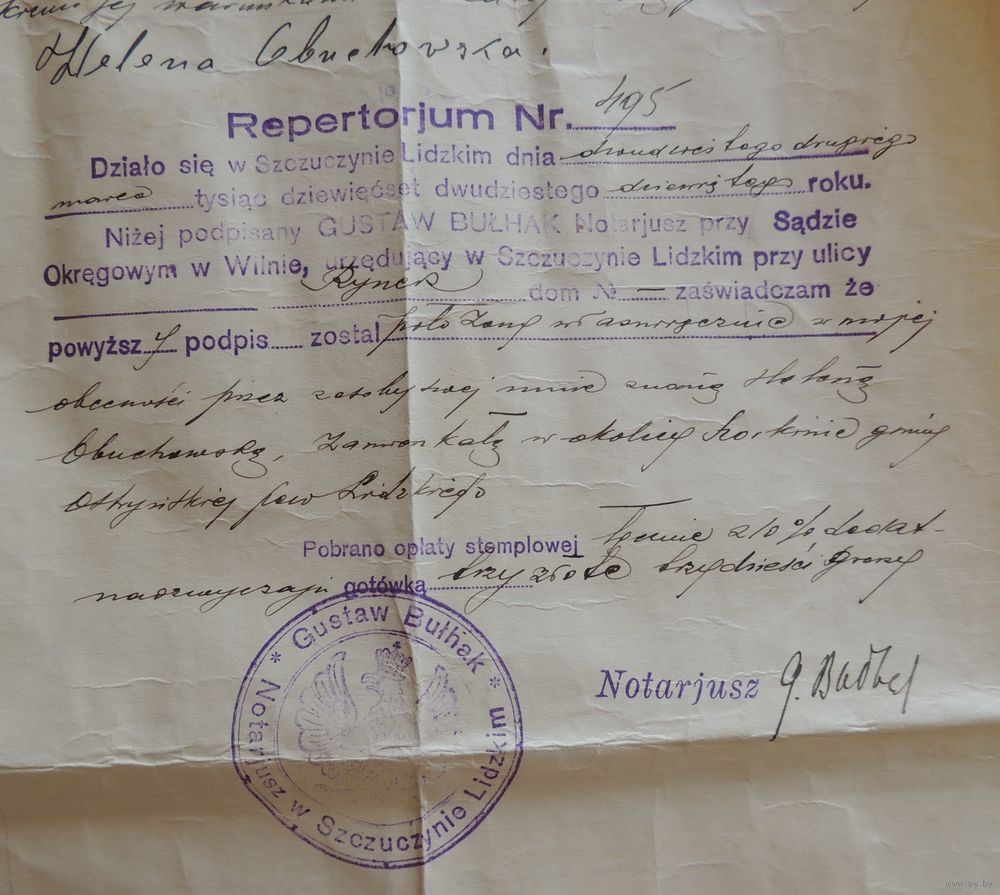 Helena Obuchowska.
Repertorjum Nr. 495
Działo się w Szczuczynie Lidzkim dnia dwudziestego drugiego
marca tysiąc dziewięćset dwudziestego dziewiątego roku.
Niżej podpisany GUSTAW BUŁHAK Notarjusz przy Sądzie
Okręgowym w Wilnie, urzędujący w Szczuczynie Lidzkim przy ulicy
Rynek dom № — zaświadczam że
powyższy podpis został położony własnoręcznie w mojej
obecności przez osobiście mnie znaną Helenę
Obuchowską, zamieszkałą w okolicy gminy
Ostryńskiej pow Lidzkiego
Pobrano opłaty stemplowej łącznie z 10% dodat-
nadzwyczajn gotówką trzy złote trzydzieści groszy
* Gustaw Bułhak *
Notarjusz w Szczuczynie Lidzkim
Notarjusz G. Bułhak
www.ay.by